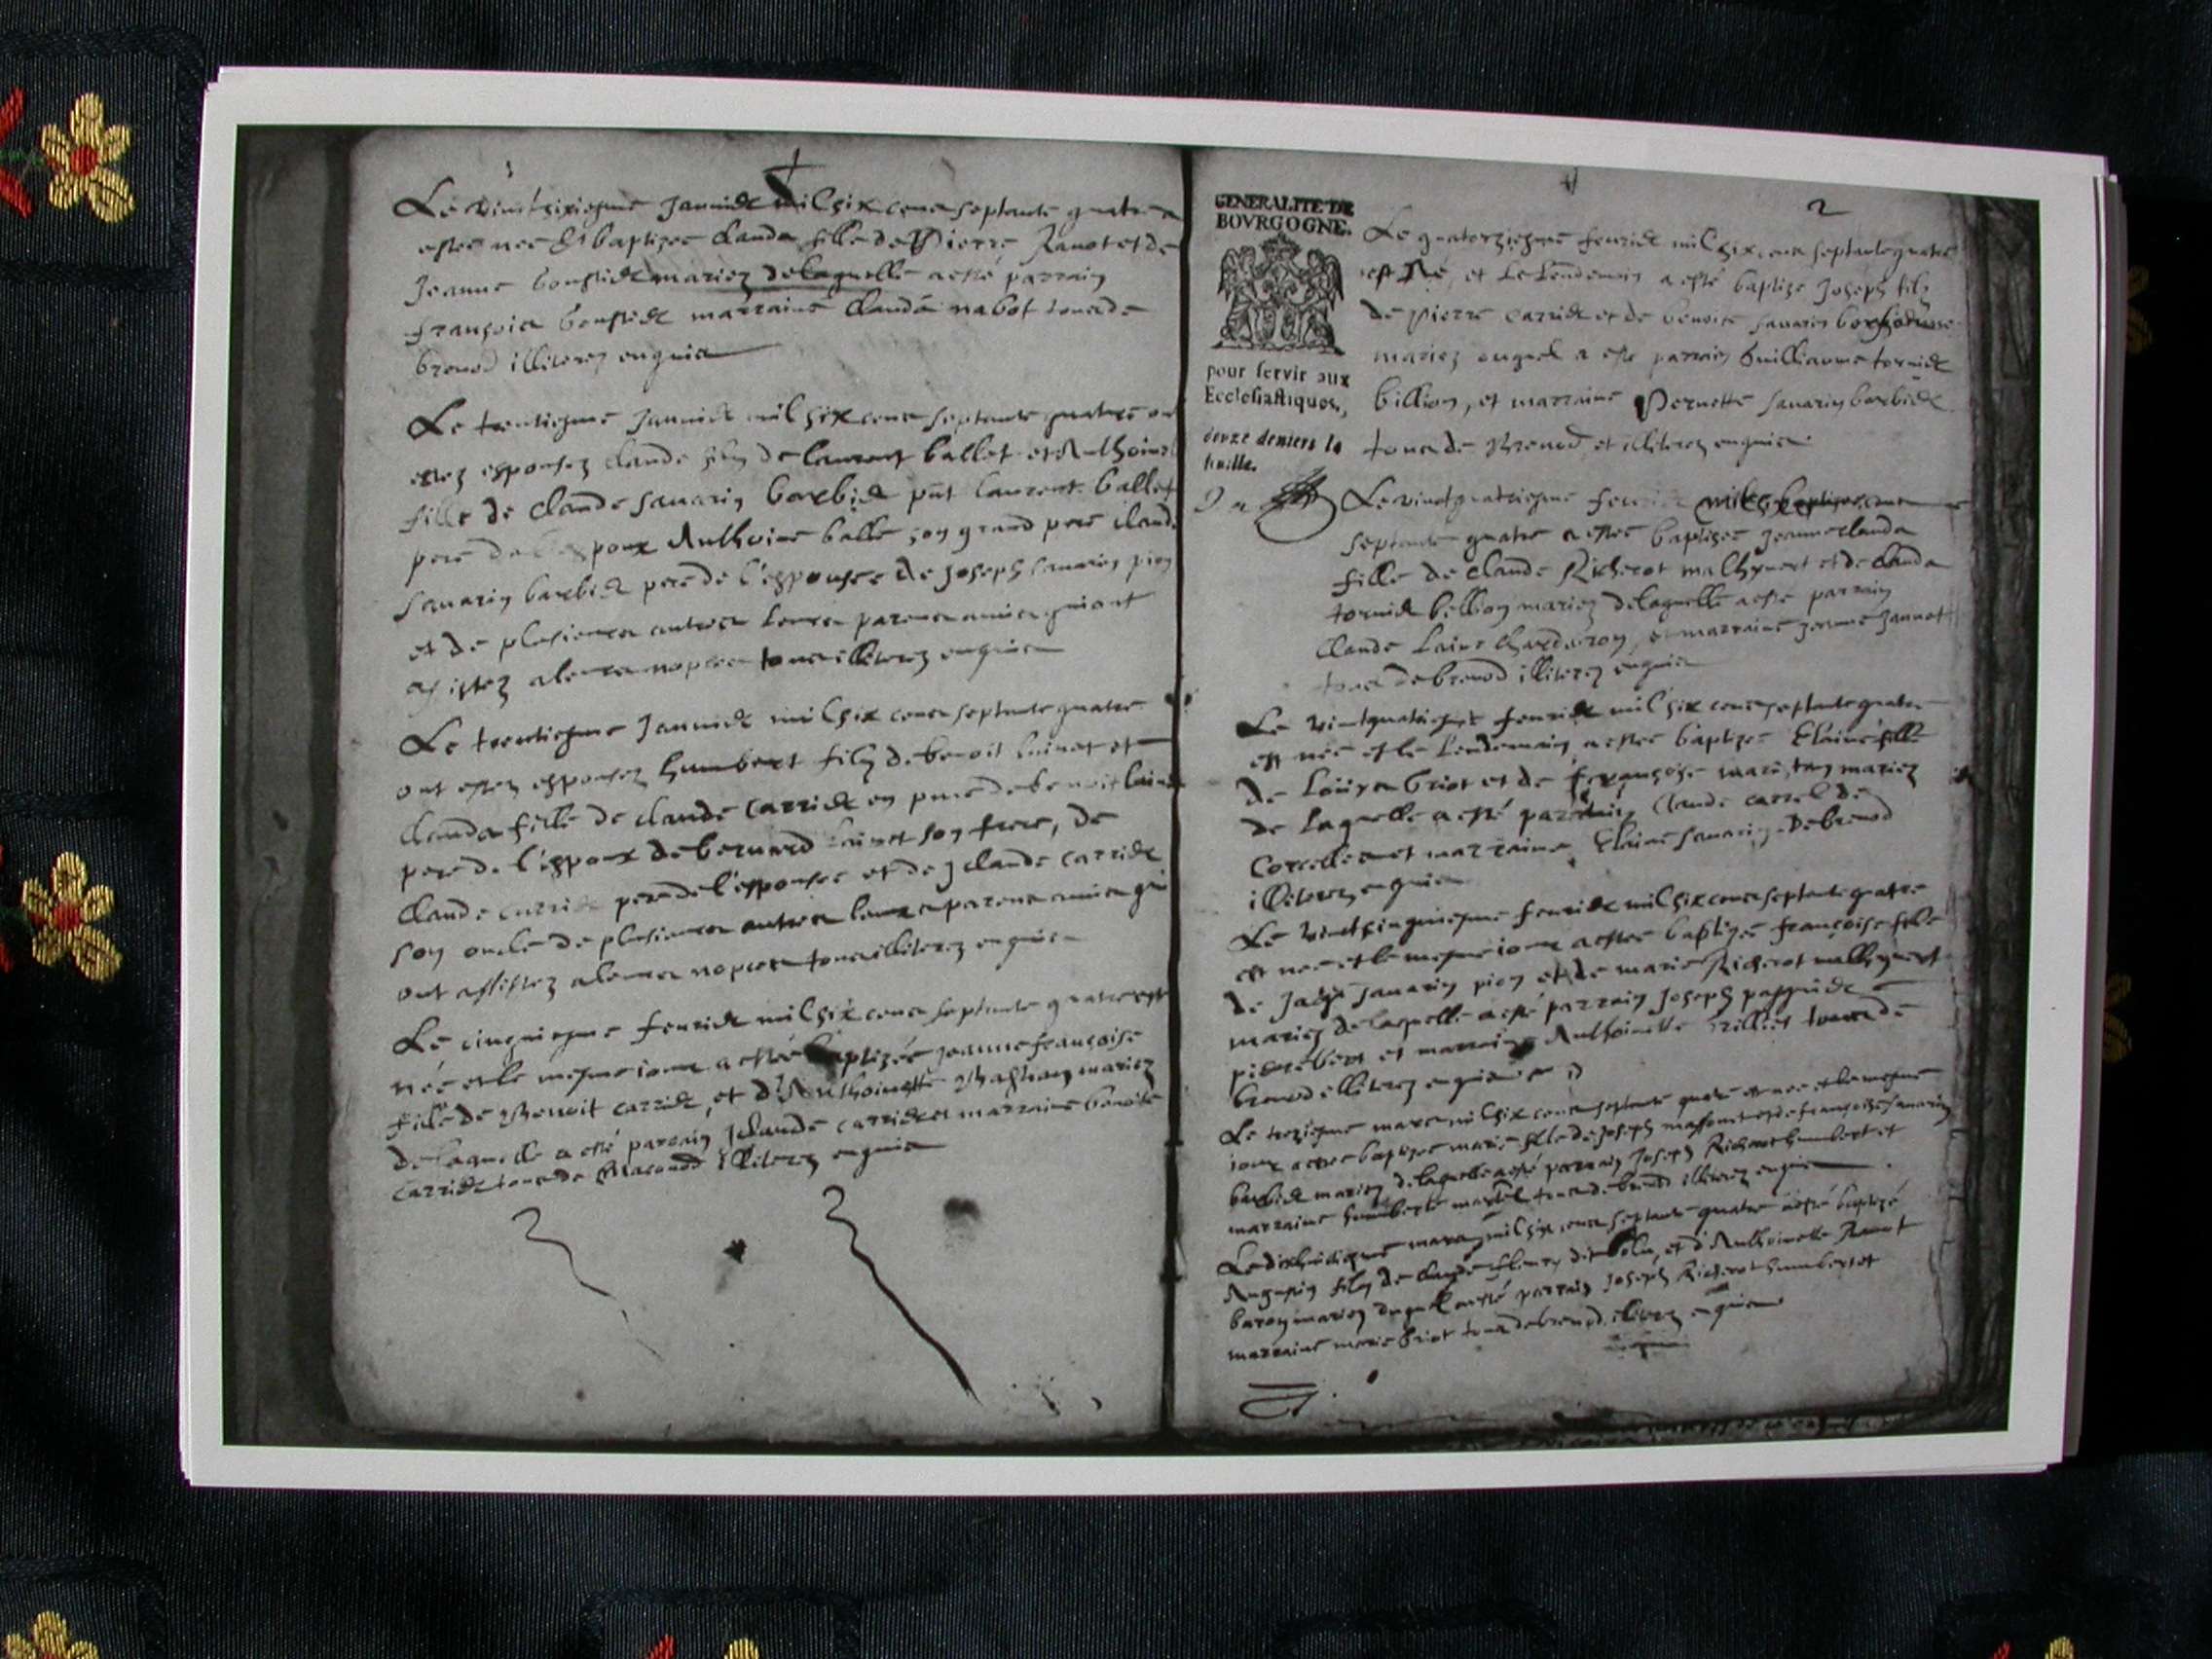 Le vintsixiesme Janvier mil six cens septante quatre a
estée née & baptizée Clauda fille de Pierre Ravot et de
Jeanne mariez de laquelle a esté parrain
françois marraine Clauda nabot tous de
brenod illiterez enquis
Le trentiesme Janvier mil six cens septante quatre ont
estez espousez Claude filz de Laurent ballet et Anthoine
fille de Claude Savarin barbier pnt Laurent ballet
pere de poux Anthoine ballé son grand pere Claude
Savarin barbier pere de l'espousée de Joseph Savarin pion
et de plusieurs autres leurs parens amis qui ont
assistez a leurs nopces tous illiterez enquis
Le trentiesme Janvier mil six cens septante quatre
ont estez espousez humbert filz de benoit lainet et
Clauda fille de Claude Carrier en pnce de benoit lainet
pere de l'espoux de bernard lainet son frere, de
Claude Carrier pere de l'espousée et de J Claude Carrier
son oncle de plusieurs autres leurs parens amis qui
ont assistez a leurs nopces tous illiterez enquis
Le cinquiesme fevrier mil six cens septante quatre est
née et le mesme jour a estée baptizée Jeanne françoise
fille de Benoit Carrier, et d'Anthoinette mariez
de laquelle a esté parrain J Claude Carrier et marraine benoite
Carrier tous de Macconod illiterez enquis
2
GENERALITE DE
BOVRGOGNE.
pour servir aux
Ecclesiastiques,
douze deniers la
feuille.
Le quatorziesme fevrier mil six cens septante quatre
est Né, et le lendemain a esté baptizé Joseph filz
de Pierre Carrier et de benoite Savarin
mariez auquel a esté parrain Guilliaume tornier
billion, et marraine Pernette Savarin barbier
tous de Brenod et illiterez enquis
Le vintquatriesme fevrier mil six cens
septante quatre a estée baptizée Jeanne Clauda
fille de Claude Richerot malhyvert et de Clauda
tornier billion mariez de laquelle a esté parrain
Claude Laine et marraine Jeanne Jannot
tous de brenod illiterez enquis
Le vintquatriesme fevrier mil six cens septante quatre
est née et le lendemain a estée baptizée Elaine fille
de Louys Griot et de françoise mariez
de laquelle a esté parrain Claude Carrel de
Corcelles et marraine Elaine Savarin de brenod
illiterez enquis
Le vintcinquiesme fevrier mil six cens septante quatre
est née et le mesme jour a estée baptizée françoise fille
de Savarin pion et de marie Richerot malhyvert
mariez de laquelle a esté parrain Joseph
et marraine Anthoinette tous de
brenod illiterez enquis
Le treziesme mars mil six cens septante quatre est née et le mesme
jour a estée baptizée marie fille de Joseph et de françoise Savarin
barbier mariez de laquelle a esté parrain Joseph Richerot humbert et
marraine humberte tous de brenod illiterez enquis
Le dixhuitiesme mars mil six cens septante quatre a esté baptizé
Augustin filz de Claude fleury dit et d'Anthoinette Ravot
baron mariez duquel a esté parrain Joseph Richerot humbert et
marraine marie Griot tous de brenod illiterez enquis